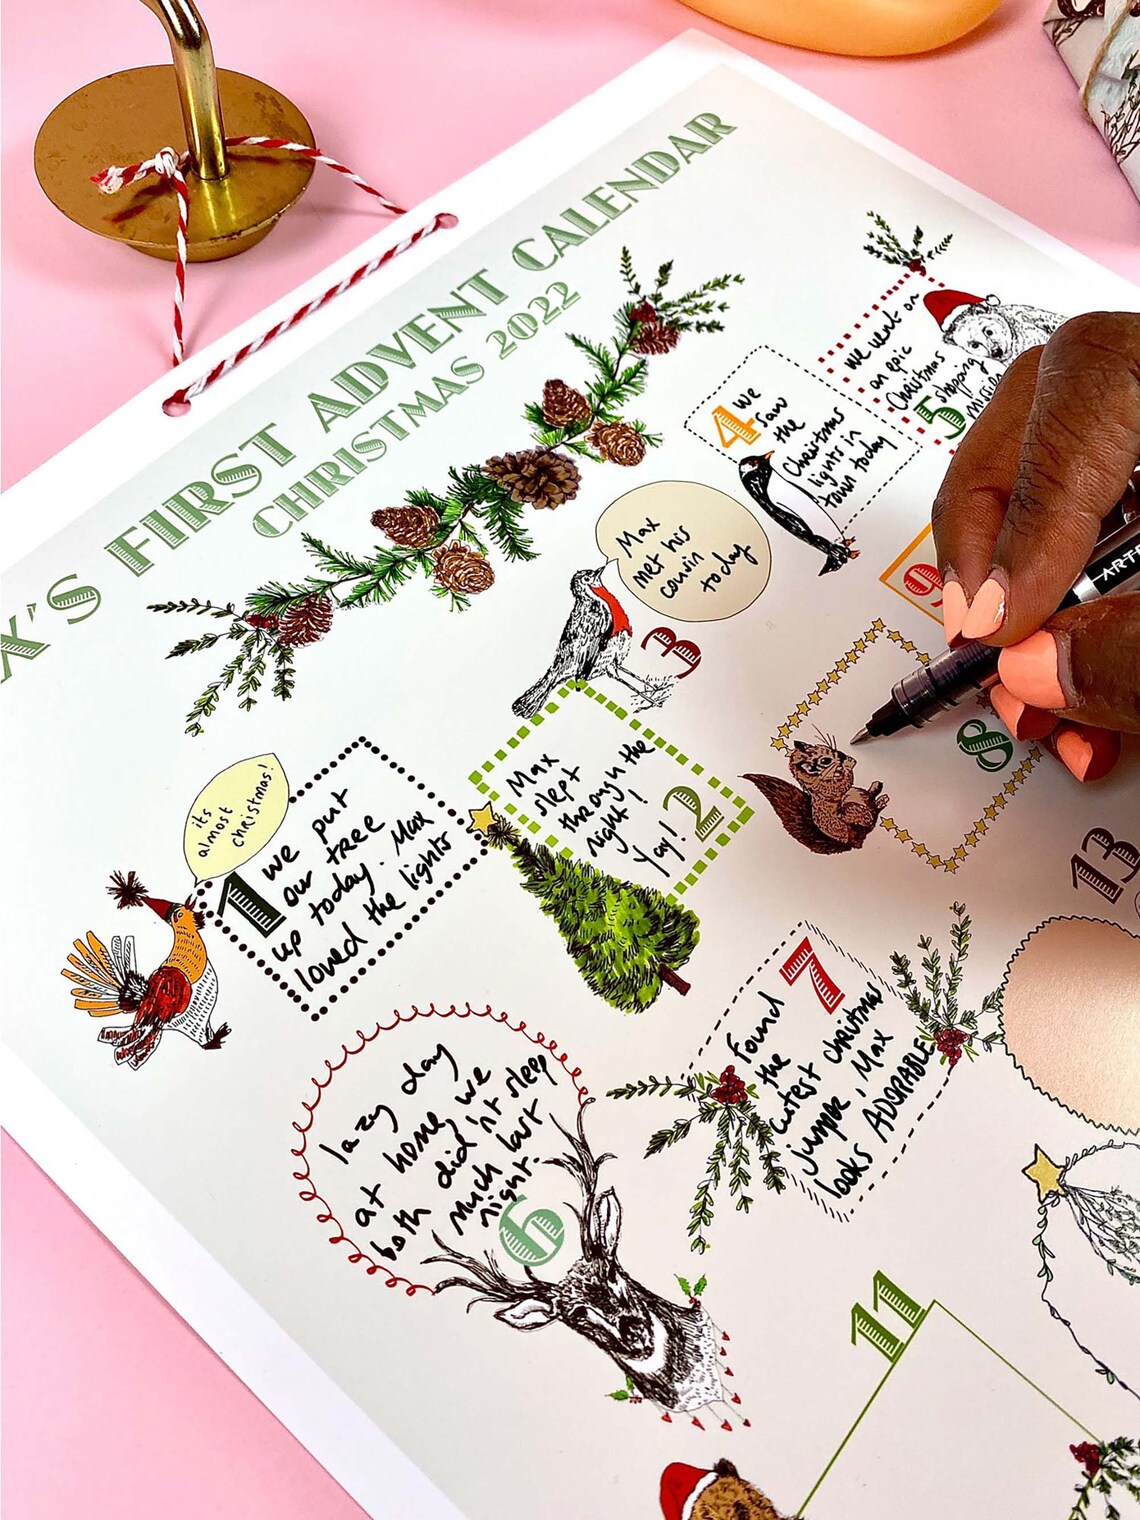 X'S FIRST ADVENT CALENDAR
CHRISTMAS 2022
its
almost
christmas!
1
we put
our tree
up today. Max
loved the lights
Max
slept
through the
night!
Yay!
2
Max
met his
cousin
today
3
4
we
saw
the
Christmas
lights in
town today
we went on
an epic
Christmas
shopping
5
lazy day
at home, we
both did'nt sleep
much last
night.
6
7
Found
the
cutest christmas
jumper, Max
looks ADORABLE
8
9
ART
13
11